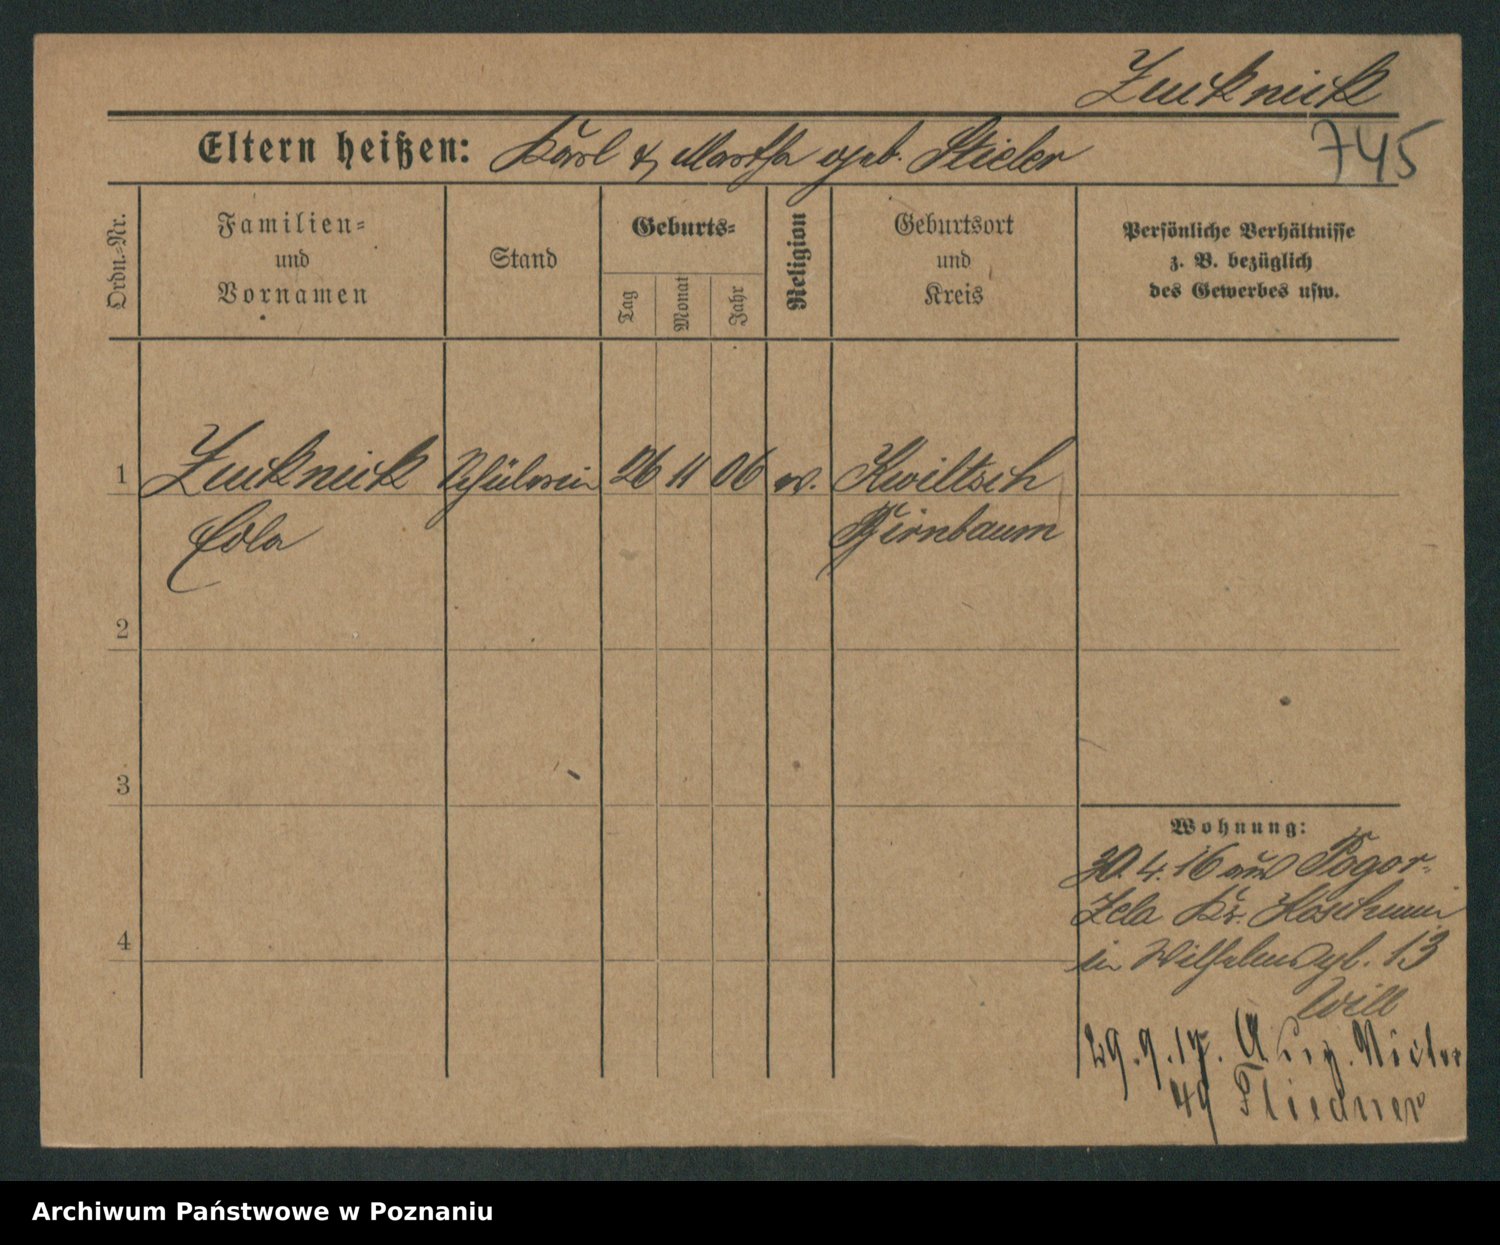 Zucknick
745
Eltern heißen: Karl & Martha geb. Stieler
Ordn.-Nr.
Familien- und Vornamen
Stand
Geburts-
Tag
Monat
Jahr
Religion
Geburtsort und Kreis
Persönliche Verhältnisse z. B. bezüglich des Gewerbes usw.
1 Zucknick Schülerin 26 11 06 ev. Kwiltsch
Birnbaum
2
3
4
Wohnung:
30.4.16 aus Pogor-
zela Kr. Koschmin
in 13
Will
29.9.17.
49 Fliedner
Archiwum Państwowe w Poznaniu